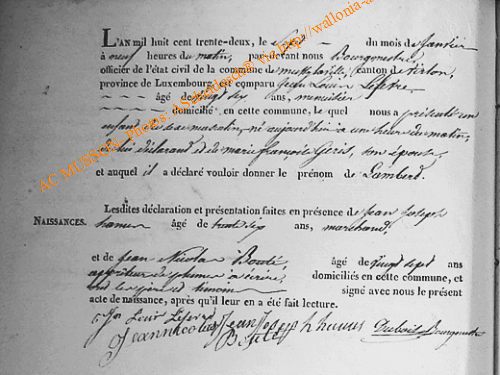 L'AN mil huit cent trente-deux, le du mois de Janvier
à neuf heures du matin, devant nous Bourgmestre,
officier de l'état civil de la commune de canton de Virton,
province de Luxembourg, est comparu Jean Louis Lefevre
âgé de vingt six ans, menuisier
domicilié en cette commune, le quel nous a présenté un
enfant du sexe masculin, né aujourd'hui à une heure du matin,
de lui déclarant et de marie françoise son épouse
et auquel il a déclaré vouloir donner le prénom de Lambert.
NAISSANCES.
Lesdites déclaration et présentation faites en présence de Jean Joseph
hamus âgé de trente six ans, marchand
et de Jean Nicolas âgé de vingt sept ans
domiciliés en cette commune, et
ont les père et témoins signé avec nous le présent
acte de naissance, après qu'il leur en a été fait lecture.
Jn Louis Lefevre
Jean nicolas Jean Joseph hamus Dubois Bourgmestre
AC MUSSON, Photos http://wallonia-a